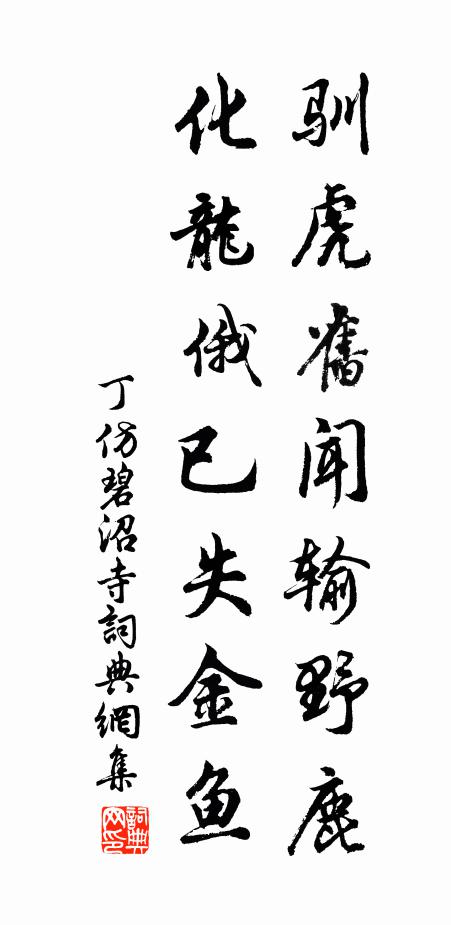 驯虎舊闻输野鹿
化龍俄已失金鱼
丁仿碧沼寺詞典網集
詞典网印